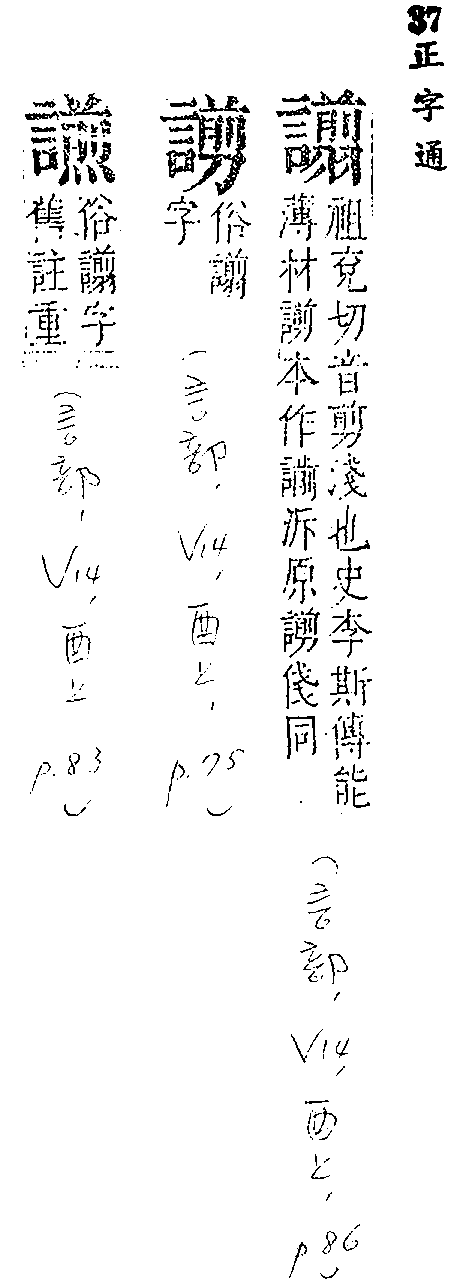 37正字通
譾
祖兗切音剪淺也史李斯傳能
薄材謭本作譾泝原謭俴同
(言部, V14, 酉上, p.86)
謭
俗譾
字
(言部, V14, 酉上, p.75)
俗譾字
舊註重
(言部, V14, 酉上 p.83)